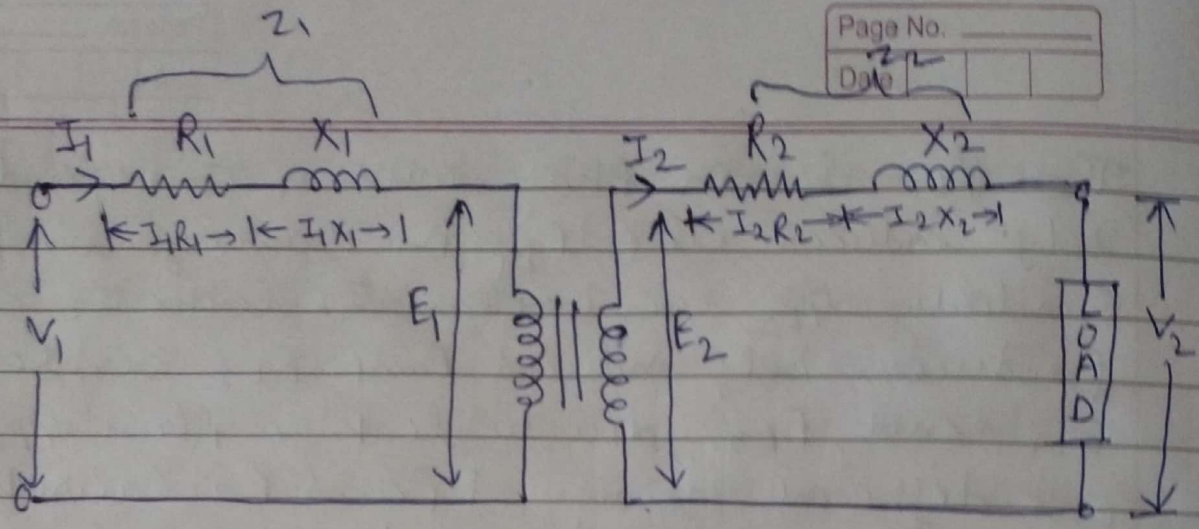 Z1
Page No.
Date
Z2
I1 R1 X1
I2 R2 X2
I1R1 I1X1
I2R2 I2X2
V1
E1
E2
LOAD
V2